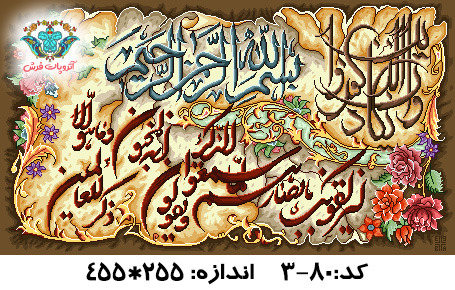 آتروپات فرش
بسم الله الرحمن الرحیم
وان یکاد الذین کفروا
لیزلقونک بابصارهم لما سمعوا الذکر و یقولون انه لمجنون و ما هو الا ذکر للعالمین
کد:۳-۸۰ اندازه: ۴۵۵*۲۵۵